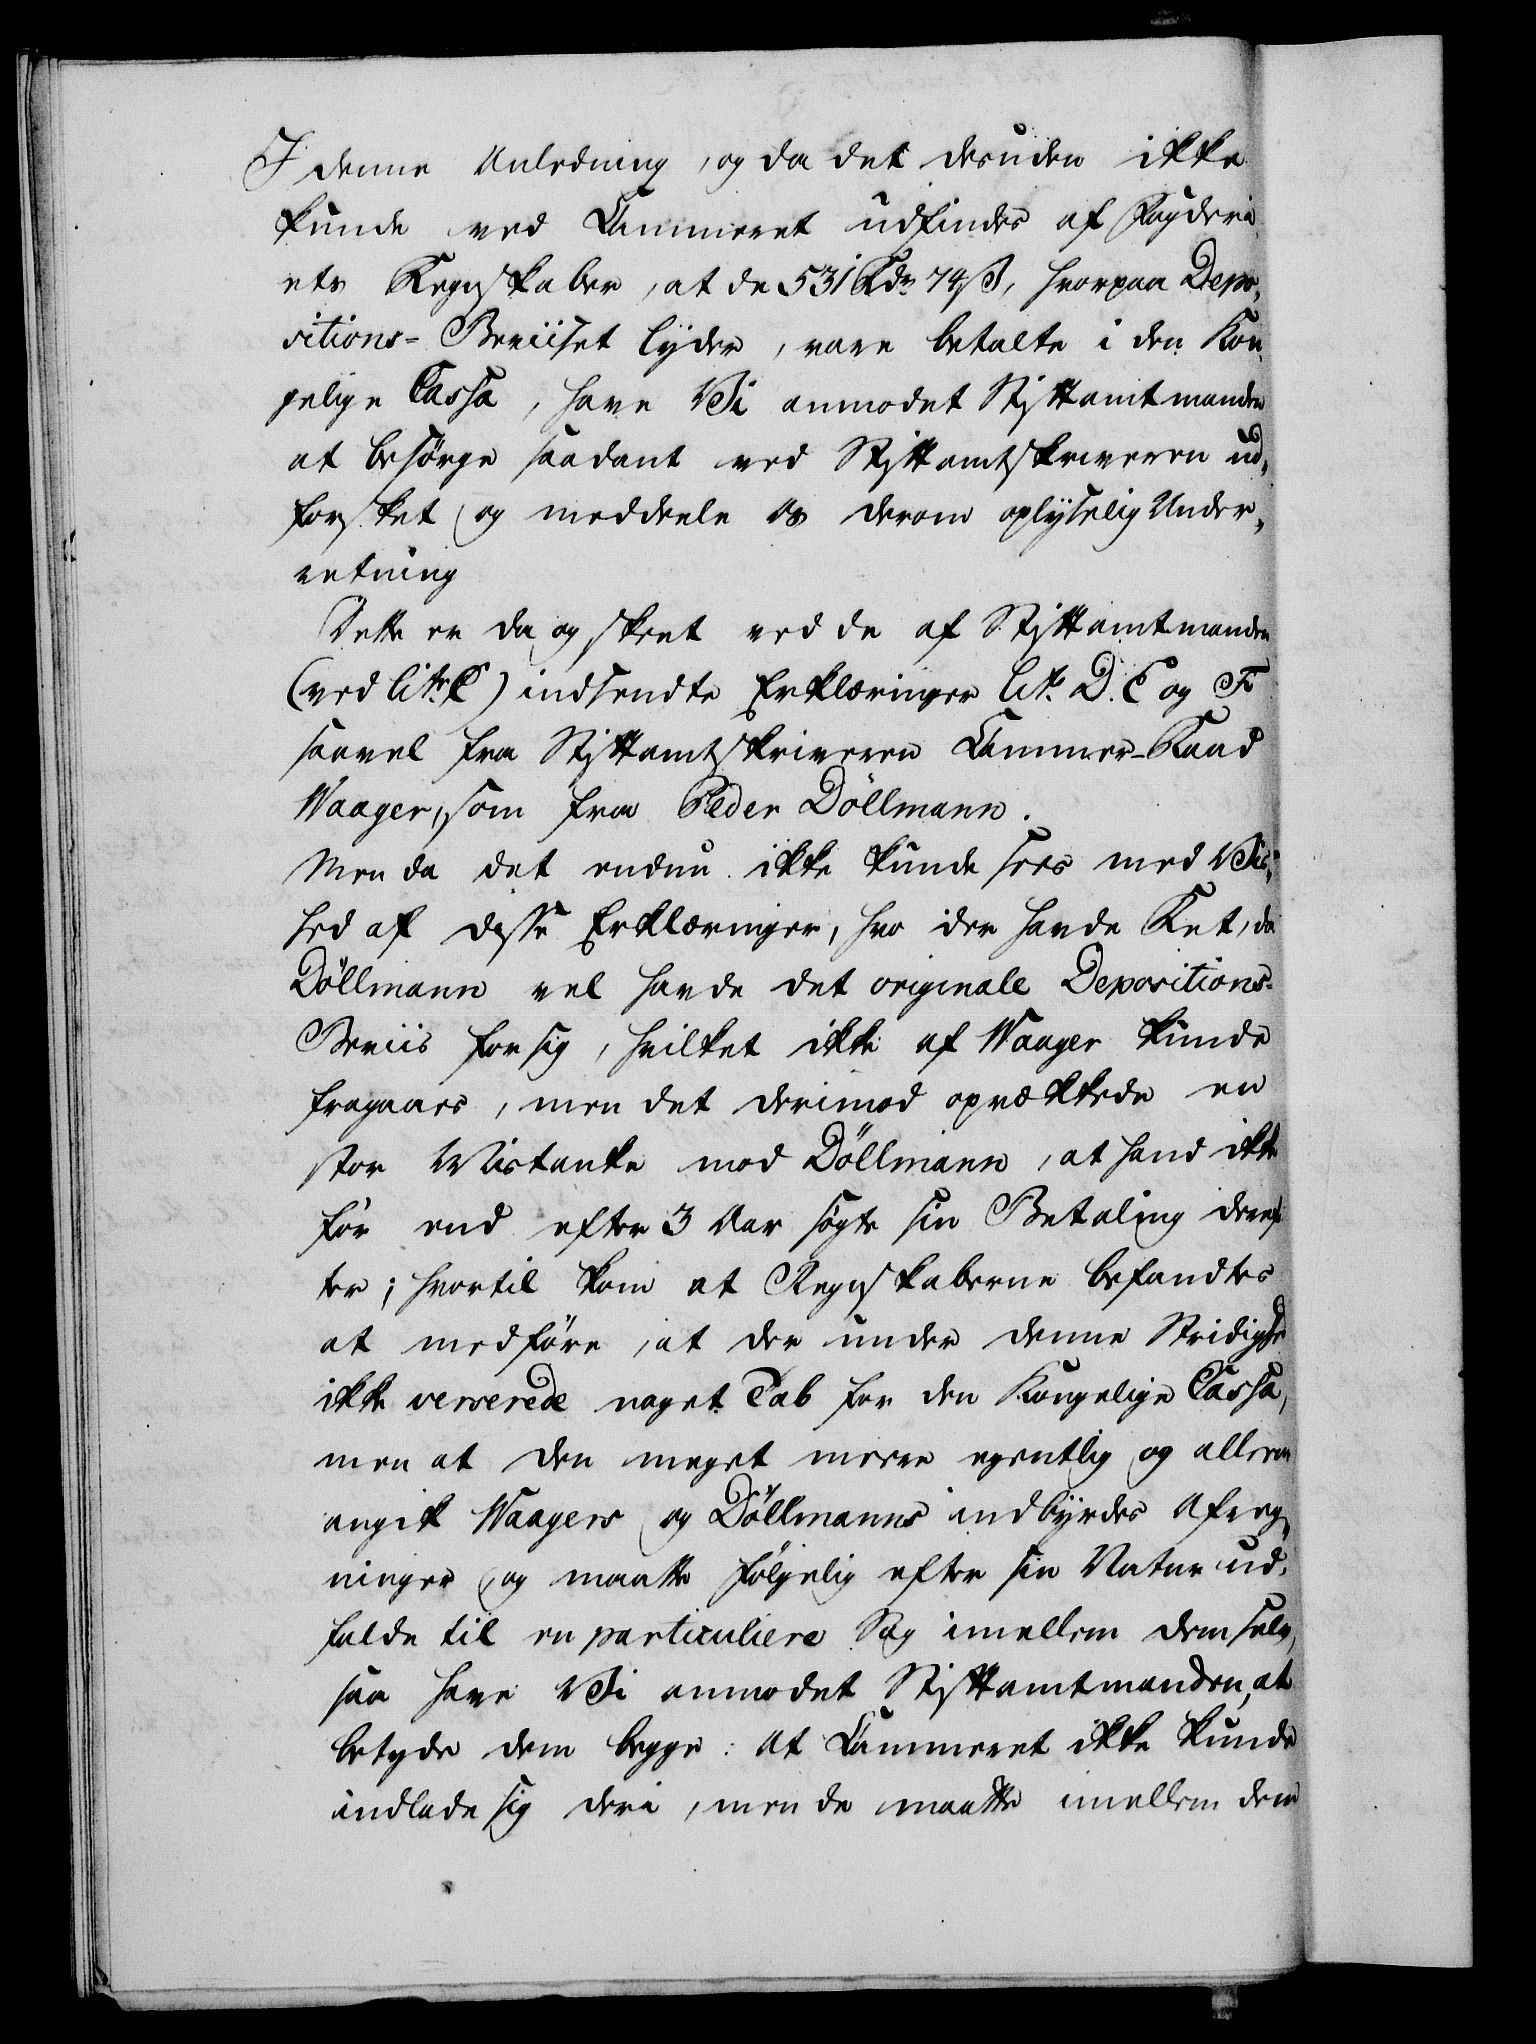 I denne Anledning, og da det desuden ikke
kunde ved Cammeret udfindes af Fogderi
ets Regnskaber, at de 531 Rdr 74 ß, hvorpaa Depo„
sitions- Beviiset lyder, vare betalte i den Kon
gelige Cassa, have Vi anmodet Stiftamtmanden
at besørge saadant ved Stiftamtskriveren ud„
forsket og meddeele os derom oplyselig Under„
retning
Dette er da og skeet ved de af Stiftamtmanden
(ved litr C) indsendte Erklæringer litr D. E og F
saavel fra Stiftamtskriveren Cammer-Raad
Waager, som fra Peder Döllmann.
Men da det endnu ikke kunde sees med Vis„
hed af disse Erklæringer, hvo der havde Ret, da
Döllmann vel havde det originale Depositions-
Beviis for sig, hvilket ikke af Waager kunde
fragaaes, men det derimod opvækkede en
stor Mistanke mod Döllmann, at hand ikke
før end efter 3 Aar søgte sin Betaling deref
ter; hvortil kom at Regnskaberne befandtes
at medføre, at der under denne Stridighed
ikke verserede noget Tab for den Kongelige Cassa,
men at den meget meere egentlig og alleene
angik Waagers og Döllmanns indbyrdes Afreg„
ninger og maatte følgelig efter sin Natur ud„
falde til en particuliere Sag imellem dem selv,
saa have Vi anmodet Stiftamtmanden, at
betyde dem begge: at Cammeret ikke kunde
indlade sig deri, men de maatte imellem dem